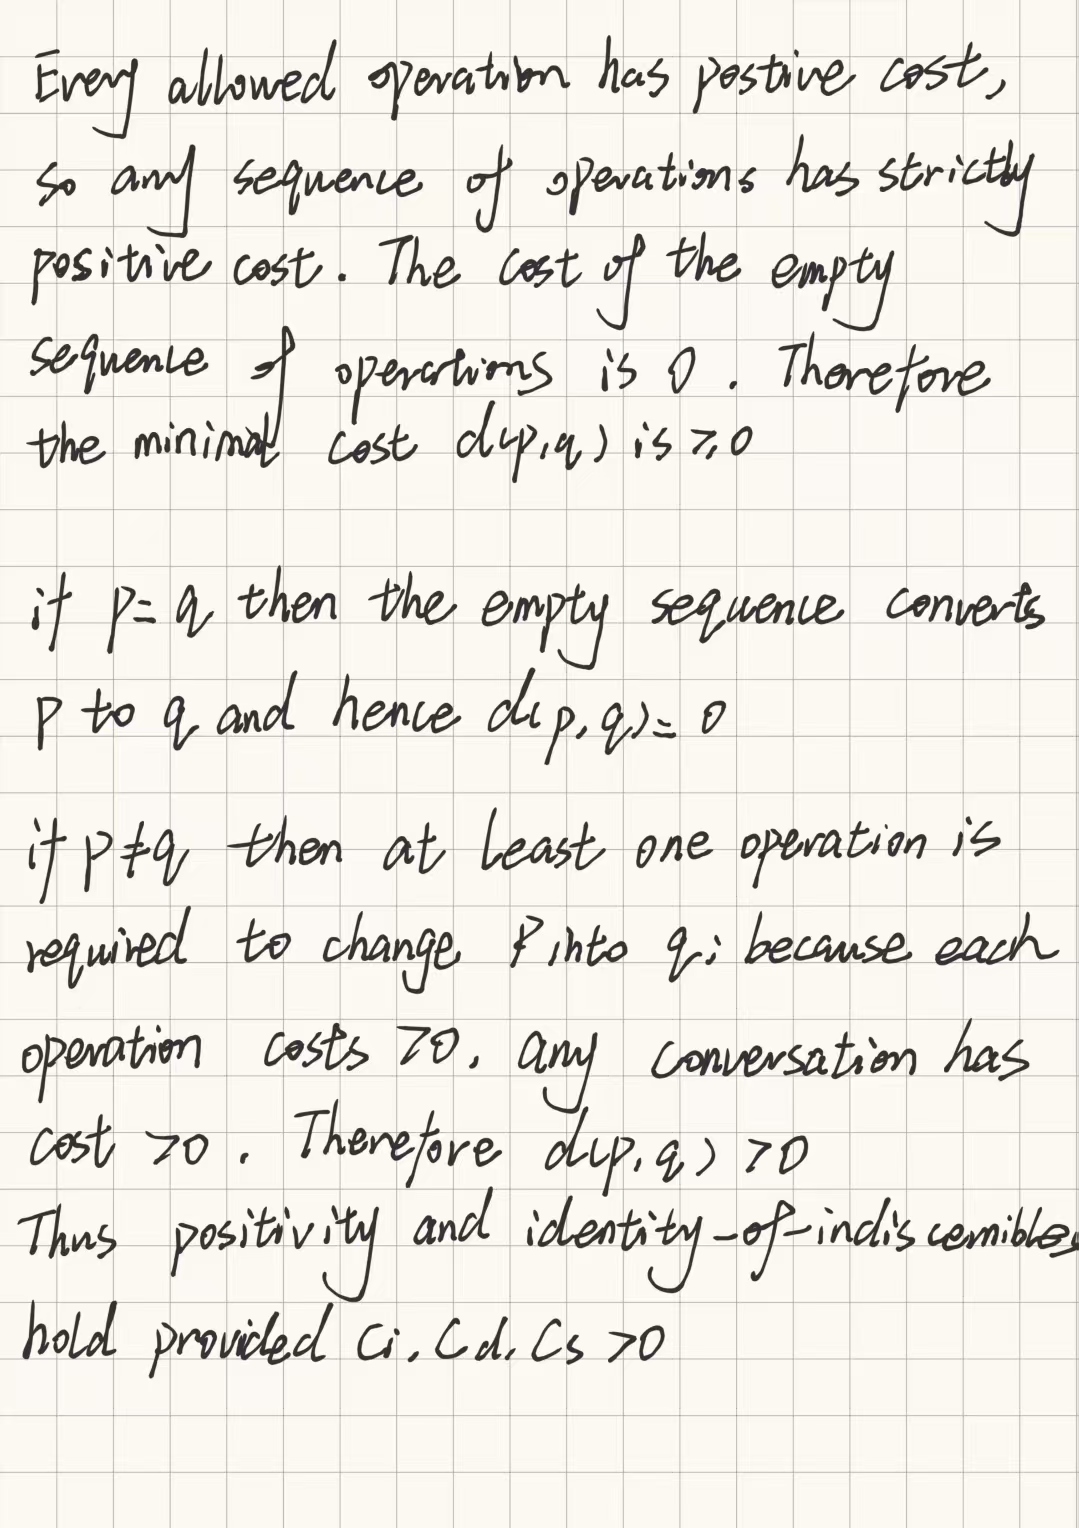 Every allowed operation has postive cost,
so any sequence of operations has strictly
positive cost. The cost of the empty
sequence of operations is 0. Therefore
the minimal cost d(p,q) is ≥0
if p=q then the empty sequence converts
p to q and hence d(p,q)=0
if p≠q then at least one operation is
required to change P into q; because each
operation costs >0, any conversation has
cost >0. Therefore d(p,q)>0
Thus positivity and identity-of-indiscernibles
hold provided Ci, Cd, Cs >0